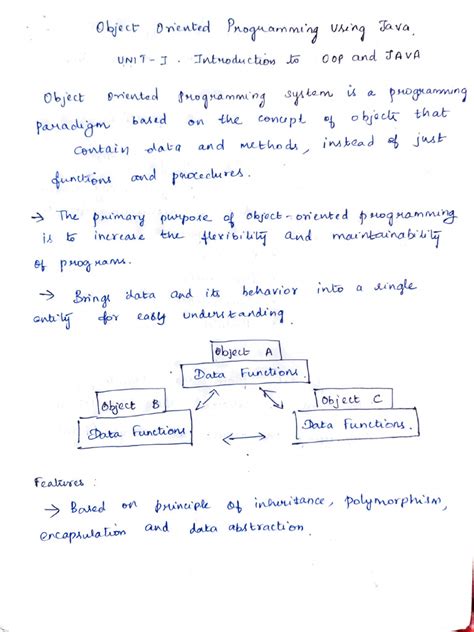 Object Oriented Programming Using Java.
UNIT-I. Introduction to OOP and JAVA
Object Oriented programming system is a programming
Paradigm based on the concept of objects that
contain data and methods, instead of just
functions and procedures.
→ The primary purpose of object-oriented programming
is to increase the flexibility and maintainability
of programs.
→ Brings data and its behavior into a single
entity for easly understanding.
Object A
Data Functions.
Object B
Object C
Data Functions.
Data Functions.
Features:
→ Based on principle of inheritance, polymorphism,
encapsulation and data abstraction.